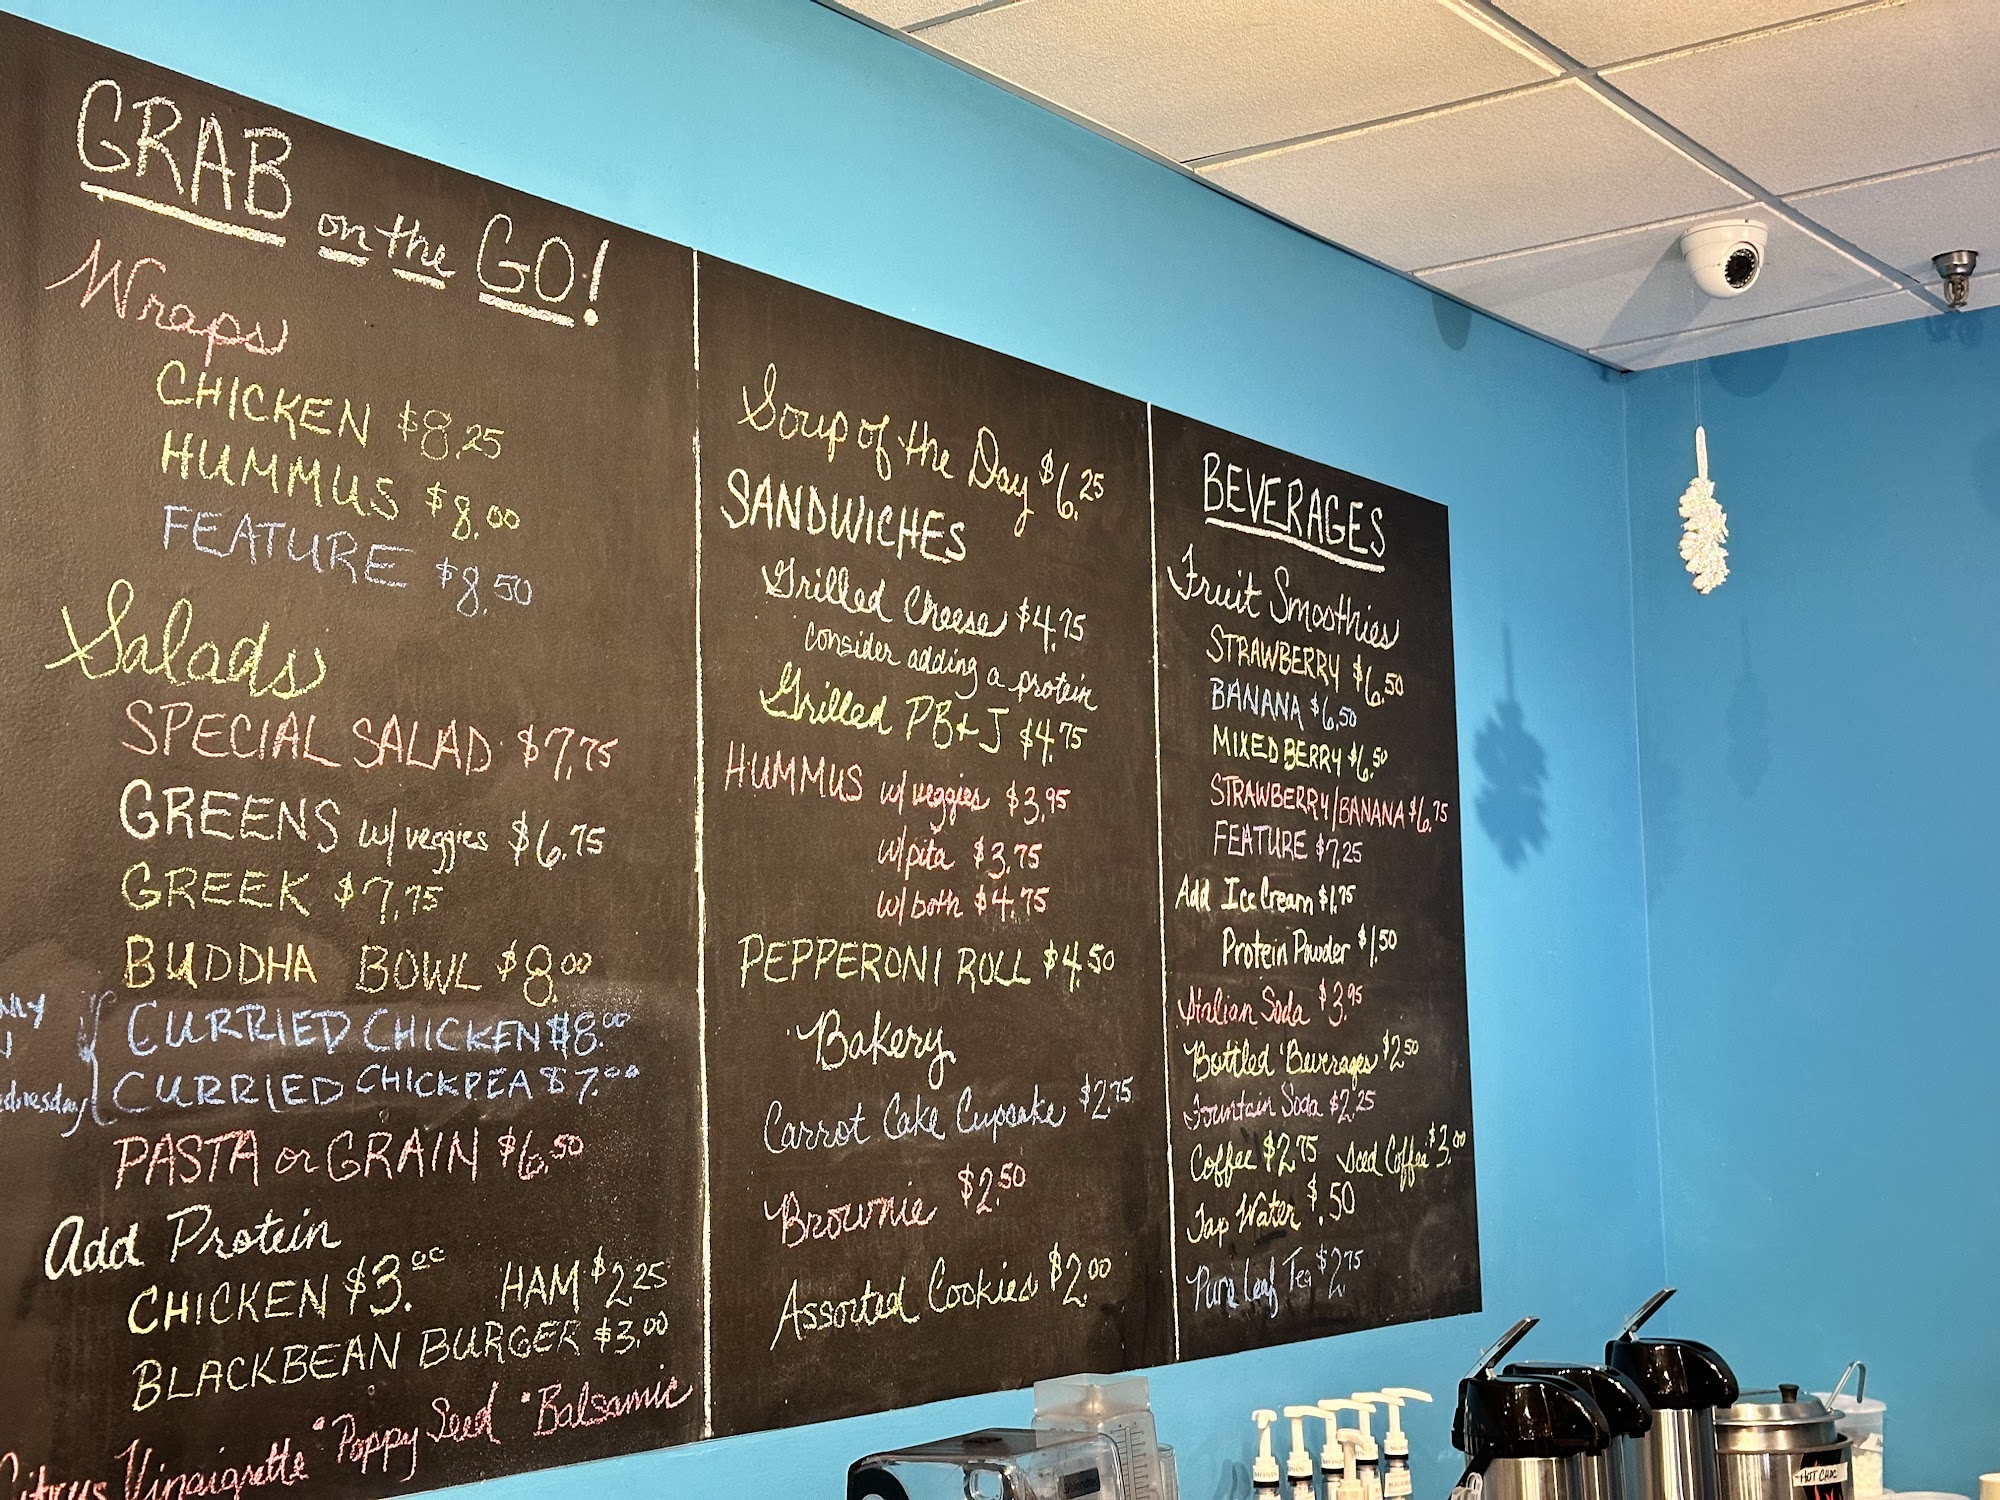 GRAB on the GO!
Wraps
CHICKEN $8.25
HUMMUS $8.00
FEATURE $8.50
Salads
SPECIAL SALAD $7.75
GREENS w/ veggies $6.75
GREEK $7.75
BUDDHA BOWL $8.00
CURRIED CHICKEN $8.00
CURRIED CHICKPEA $7.00
PASTA or GRAIN $6.50
Add Protein
CHICKEN $3.00 HAM $2.25
BLACKBEAN BURGER $3.00
Citrus Vinaigrette "Poppy Seed "Balsamic
Soup of the Day $6.25
SANDWICHES
Grilled Cheese $4.75
consider adding a protein
Grilled PB+J $4.75
HUMMUS w/ veggies $3.95
w/pita $3.75
w/both $4.75
PEPPERONI ROLL $4.50
Bakery
Carrot Cake Cupcake $2.75
Brownie $2.50
Assorted Cookies $2.00
BEVERAGES
Fruit Smoothies
STRAWBERRY $6.50
BANANA $6.50
MIXED BERRY $6.50
STRAWBERRY/BANANA $6.75
FEATURE $7.25
Add Ice Cream $1.75
Protein Powder $1.50
Italian Soda $3.95
Bottled Beverages $2.50
Fountain Soda $2.25
Coffee $2.75 Iced Coffee $3.00
Tap Water $.50
Pure Leaf Tea $2.75
HOT CHOC